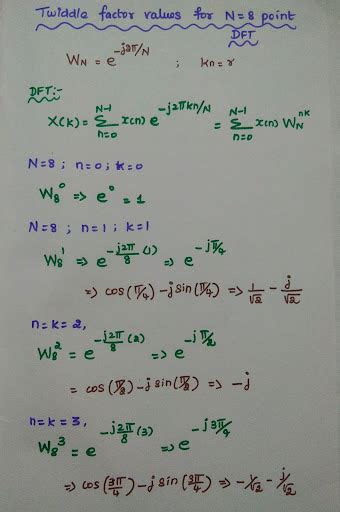 Twiddle factor values for N=8 point
DFT
W_N = e^{-j2π/N} ; kn = r
DFT:-
X(k) = Σ_{n=0}^{N-1} x(n) e^{-j2πkn/N} = Σ_{n=0}^{N-1} x(n) W_N^{nk}
N=8 ; n=0 ; k=0
W_8^0 ⇒ e^0 = 1
N=8 ; n=1 ; k=1
W_8^1 ⇒ e^{-j2π/8 (1)} ⇒ e^{-jπ/4}
⇒ cos(π/4) - j sin(π/4) ⇒ 1/√2 - j/√2
n=k=2,
W_8^2 = e^{-j2π/8 (2)} ⇒ e^{-jπ/2}
= cos(π/2) - j sin(π/2) ⇒ -j
n=k=3,
W_8^3 = e^{-j2π/8 (3)} ⇒ e^{-j3π/4}
⇒ cos(3π/4) - j sin(3π/4) ⇒ -1/√2 - j/√2